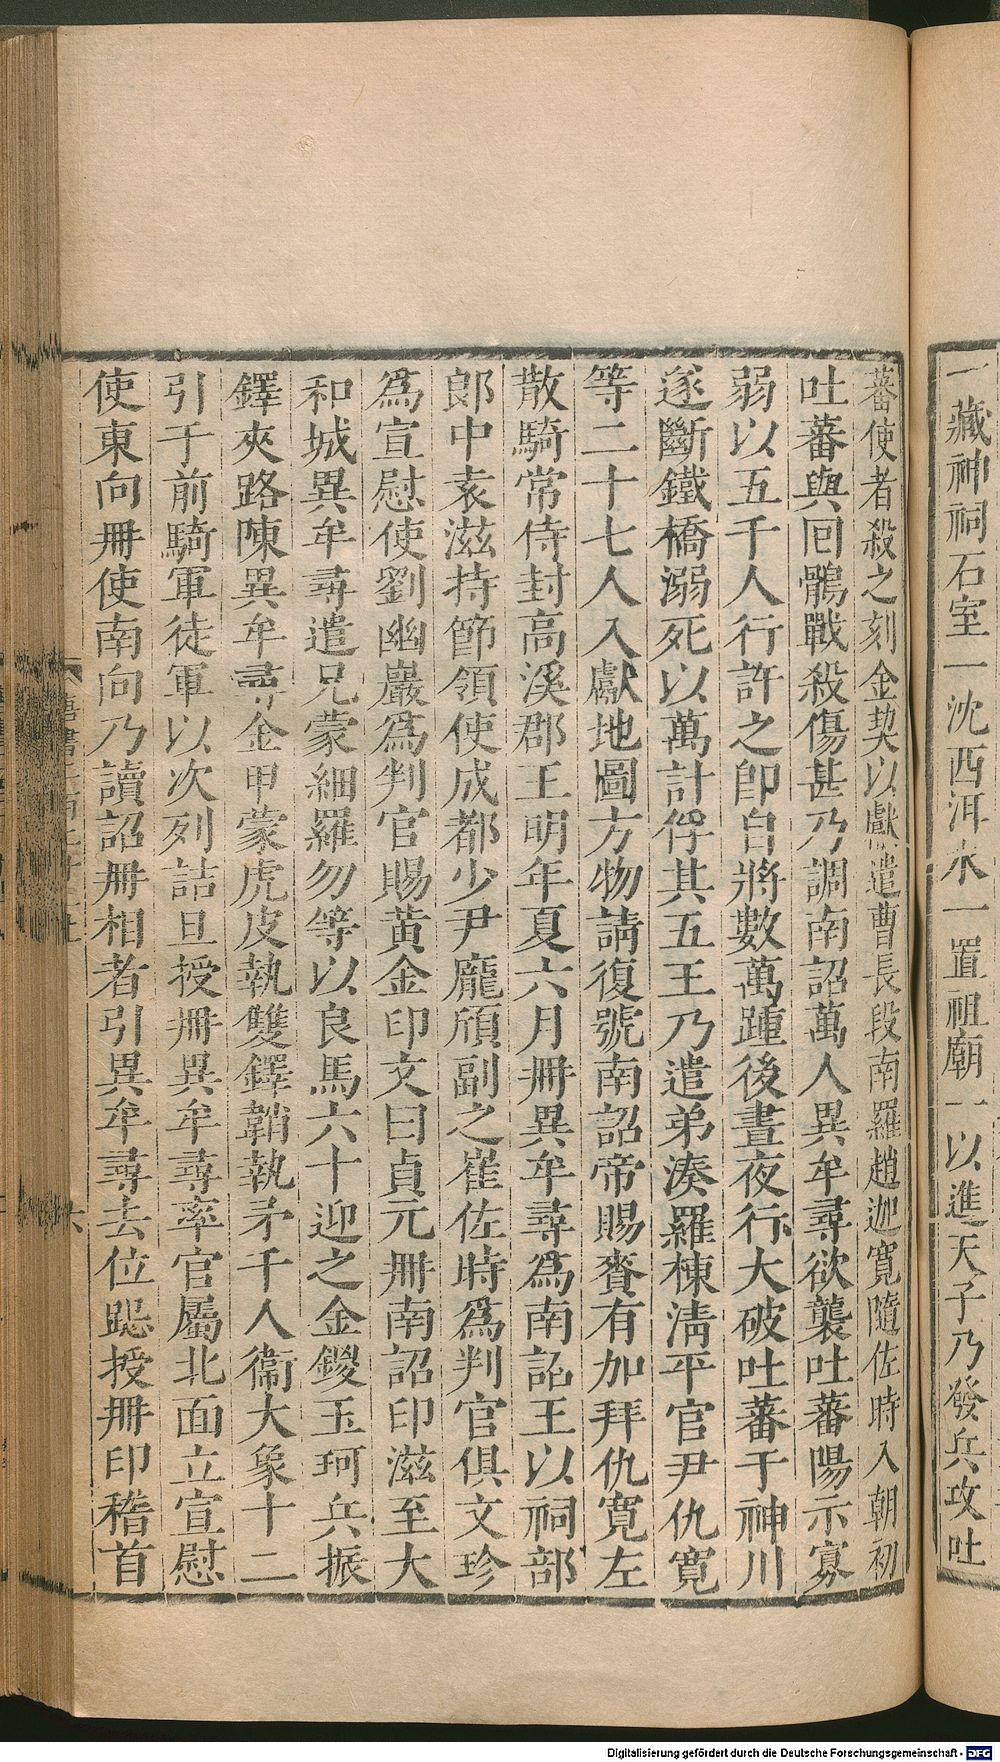 一藏神祠石室一沈西洱水一置祖廟一以進天子乃發兵攻吐
蕃使者殺之刻金契以獻遣曹長段南羅趙迦寬隨佐時入朝初
吐蕃與回鶻戰殺傷甚乃調南詔萬人異牟尋欲襲吐蕃陽示寡
弱以五千人行許之卽自將數萬踵後晝夜行大破吐蕃于神川
遂斷鐵橋溺死以萬計俘其五王乃遣弟湊羅棟淸平官尹仇寬
等二十七人入獻地圖方物請復號南詔帝賜賚有加拜仇寬左
散騎常侍封高溪郡王明年夏六月冊異牟尋爲南詔王以祠部
郎中袁滋持節領使成都少尹龐頎副之崔佐時爲判官俱文珍
爲宣慰使劉幽巖爲判官賜黃金印文曰貞元冊南詔印滋至大
和城異牟尋遣兄蒙細羅勿等以良馬六十迎之金鍐玉珂兵振
鐸夾路陳異牟尋金甲蒙虎皮執雙鐸鞘執矛千人衞大象十二
引于前騎軍徒軍以次列詰旦授冊異牟尋率官屬北面立宣慰
使東向冊使南向乃讀詔冊相者引異牟尋去位跽授冊印稽首
Digitalisierung gefördert durch die Deutsche Forschungsgemeinschaft - DFG